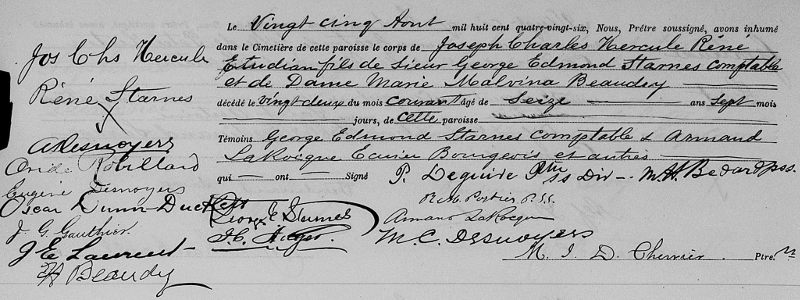 Jos Chs Hercule
Réné Starnes
Le Vingt Cinq Aout mil huit cent quatre-vingt-six, Nous, Prêtre soussigné, avons inhumé
dans le Cimetière de cette paroisse le corps de Joseph Charles Hercule Réné
Etudian fils de Sieur George Edmond Starnes Comptable
et de Dame Marie Malvina Beaudry
décédé le vingt deux du mois courant âgé de Seize ans sept mois
jours, de cette paroisse
Témoins George Edmond Starnes Comptable & Armand
LaRocque Ecuier Bourgeois et autres
qui ont Signé
P. Deguire Ptre ss Div M. H. Bedard pss.
A Desnoyers
Ovide Robillard
Eugène Desnoyers
Oscar Dunn
J. G. Gauthier
J E Laurent
Beaudry
George E Starnes
R. M. Portier P.S.S.
Armand LaRocque
M. C. Desnoyers
M. J. D. Cherrier Ptre.